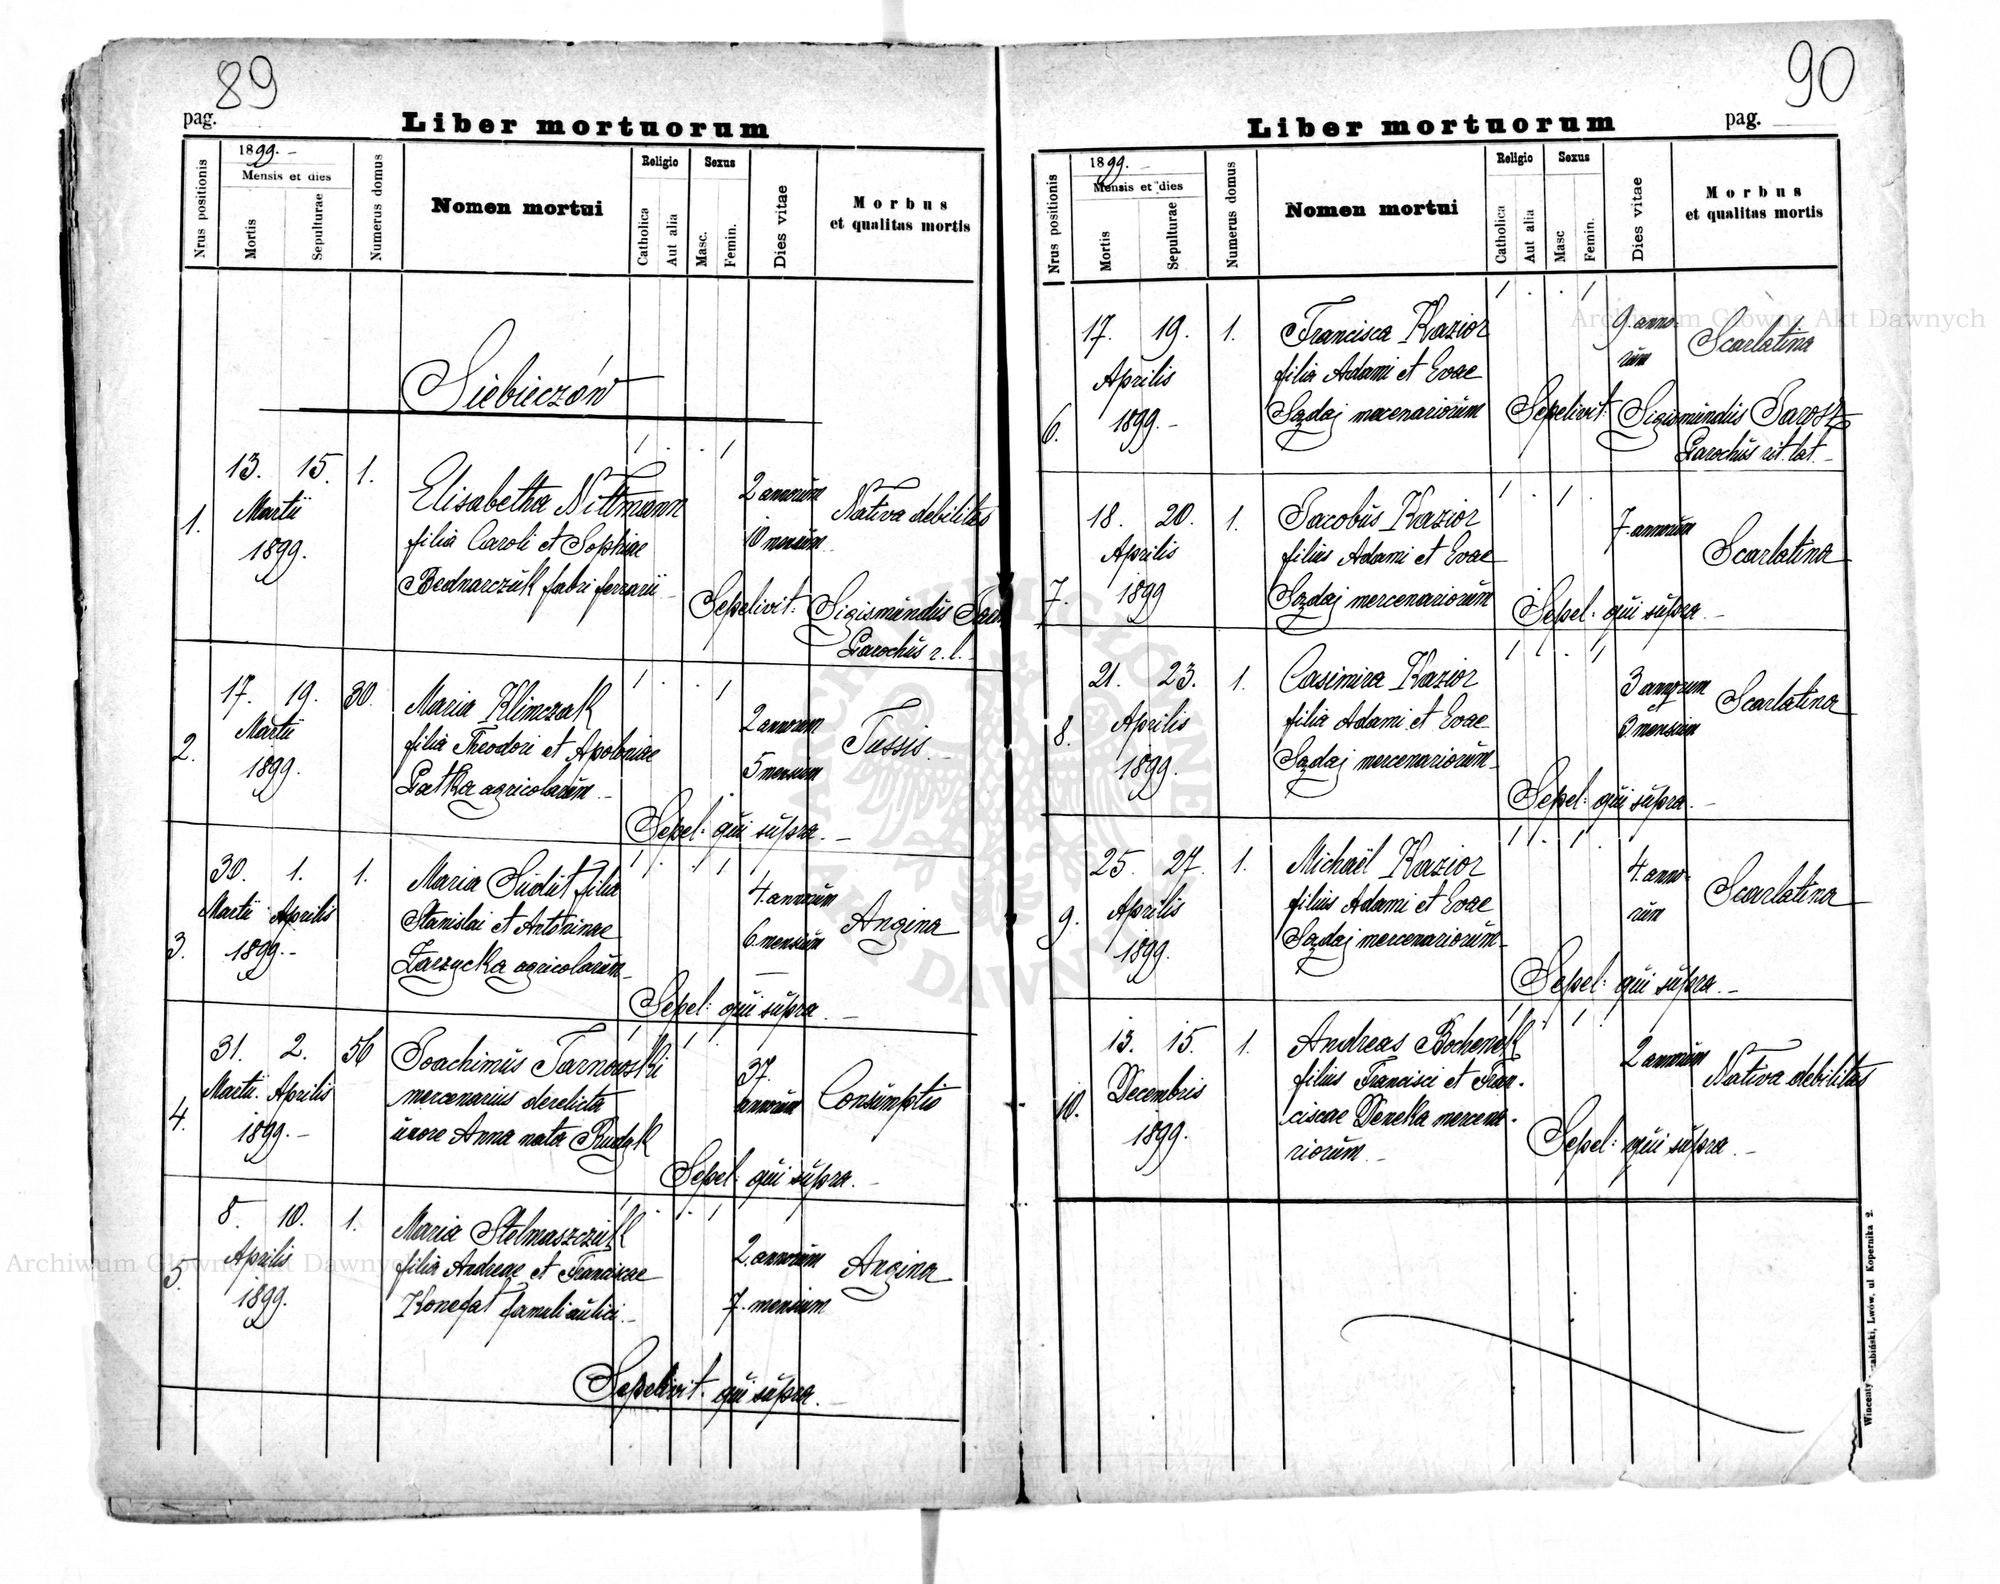 89
pag.
Liber mortuorum
1899.-
Mensis et dies
Nrus positionis
Mortis
Sepulturae
Numerus domus
Nomen mortui
Religio
Catholica
Aut alia
Sexus
Masc.
Femin.
Dies vitae
Morbus
et qualitas mortis
Siebieczów
1. . . 1
13. 15. 1. Elisabetha Nittmann 2 annorum Nativa debilitas
1. Martii filia Caroli et Sophiae 10 mensium
1899. Bednarczuk fabri ferrarii
Sepelivit: Sigismundus
Parochus r. l.
1 . . 1
17. 19. 30. Maria Klimczak 2 annorum Tussis.
2. Martii filia Theodori et Apoloniae 5 mensium
1899. Gałka agricolarum.
Sepel: qui supra.
1 . . 1
30. 1. 1. Maria Sudut filia 4 annorum Angina
Martii Aprilis Stanislai et Antoninae 6 mensium
3. 1899.- Zarzycka agricolarum
Sepel: qui supra.
31. 2. 56 Joachimus Tarnowski 37. annorum Consumptio
Martii. Aprilis mercenarius derelicta
4. 1899.- uxore Anna nata Rudyk
Sepel: qui supra.
8. 10. 1. Maria Stelmaszczuk 2 annorum Angina
5. Aprilis filia Andreae et Franciscae 7. mensium
1899. Konefał famuli aulici.
Sepelivit. qui supra.
90
Liber mortuorum
pag.
1899.-
Mensis et dies
Nrus positionis
Mortis
Sepulturae
Numerus domus
Nomen mortui
Religio
Catholica
Aut alia
Sexus
Masc
Femin.
Dies vitae
Morbus
et qualitas mortis
1 . . 1
17. 19. 1. Francisca Kazior 9. anno- Scarlatina
Aprilis filia Adami et Evae rum
6. 1899.- Sazdaj mercenariorum Sepelivit: Sigismundus Jarosz
Parochus rit. lat.
1 . 1
18. 20. 1. Jacobus Kazior 7. annorum Scarlatina
Aprilis filius Adami et Evae
7. 1899 Sazdaj mercenariorum Sepel: qui supra.
21. 23. 1. Casimira Kazior 3 annorum Scarlatina
8. Aprilis filia Adami et Evae 3. mensium
1899. Sazdaj mercenariorum
Sepel: qui supra.
25. 27. 1. Michaël Kazior 4. anno- Scarlatina
9. Aprilis filius Adami et Evae rum
1899. Sazdaj mercenariorum
Sepel: qui supra.
13. 15. 1. Andreas Bochenek 2 annorum Nativa debilitas
10. Decembris filius Francisci et Fran-
1899. ciscae Deneka mercena-
riorum. Sepel: qui supra.
Lwów, ul Kopernika 2.
Archiwum Główne Akt Dawnych